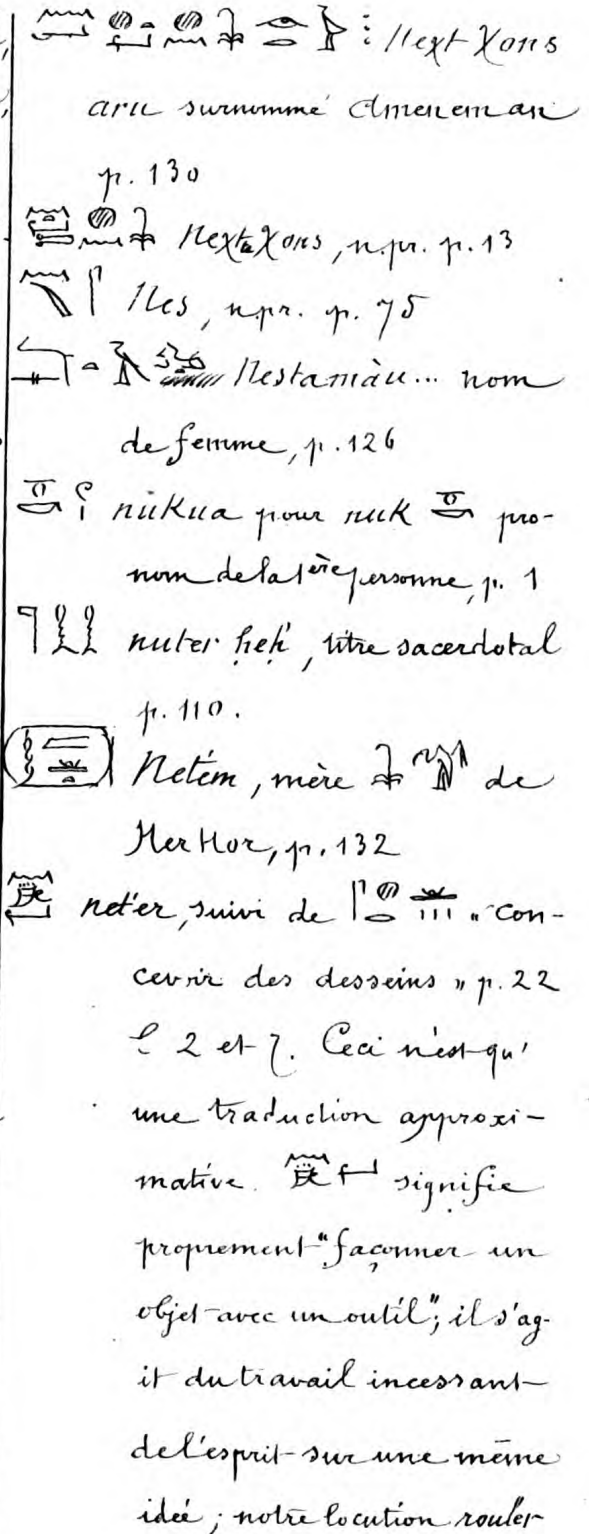 Next Xons
aru surnommé Amenem an
p. 130
Next Xons, n.pr. p. 13
Nes, n.pr. p. 75
Nestamàu... nom
de femme, p. 126
nùkua pour nuk pro-
nom de la 1ère personne, p. 1
nuter ḥeḥ, titre sacerdotal
p. 110.
Net'em, mère de
Her Hor, p. 132
net'er, suivi de " con-
cevoir des desseins " p. 22
l. 2 et 7. Ceci n'est qu'
une traduction approxi-
mative. signifie
proprement "façonner un
objet avec un outil"; il s'ag-
it du travail incessant
de l'esprit sur une même
idée ; notre locution rouler